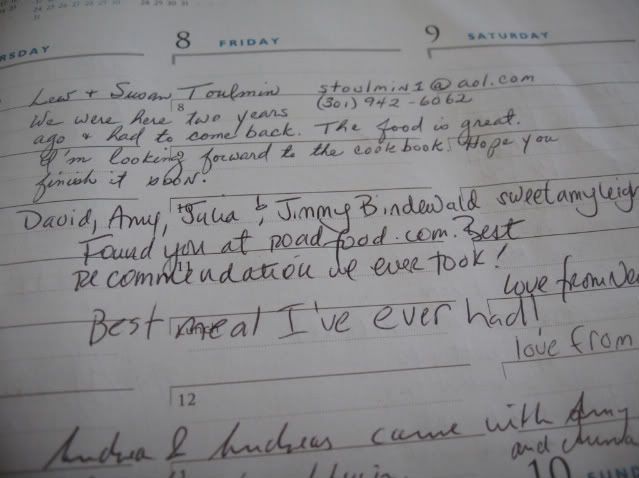 RSDAY 8 FRIDAY 9 SATURDAY
Lew + Susan Toulmin stoulmin1@aol.com
8 (301) 942-6062
We were here two years
ago & had to come back. The food is great.
I'm looking forward to the cookbook. Hope you
finish it soon.
David, Amy, Julia, Jimmy Bindewald sweetamyleigh
Found you at roadfood.com. Best
recommendation we ever took!
love from
Best meal I've ever had!
love from
12
Andrea & Andreas came with Amy
and
10 SUND